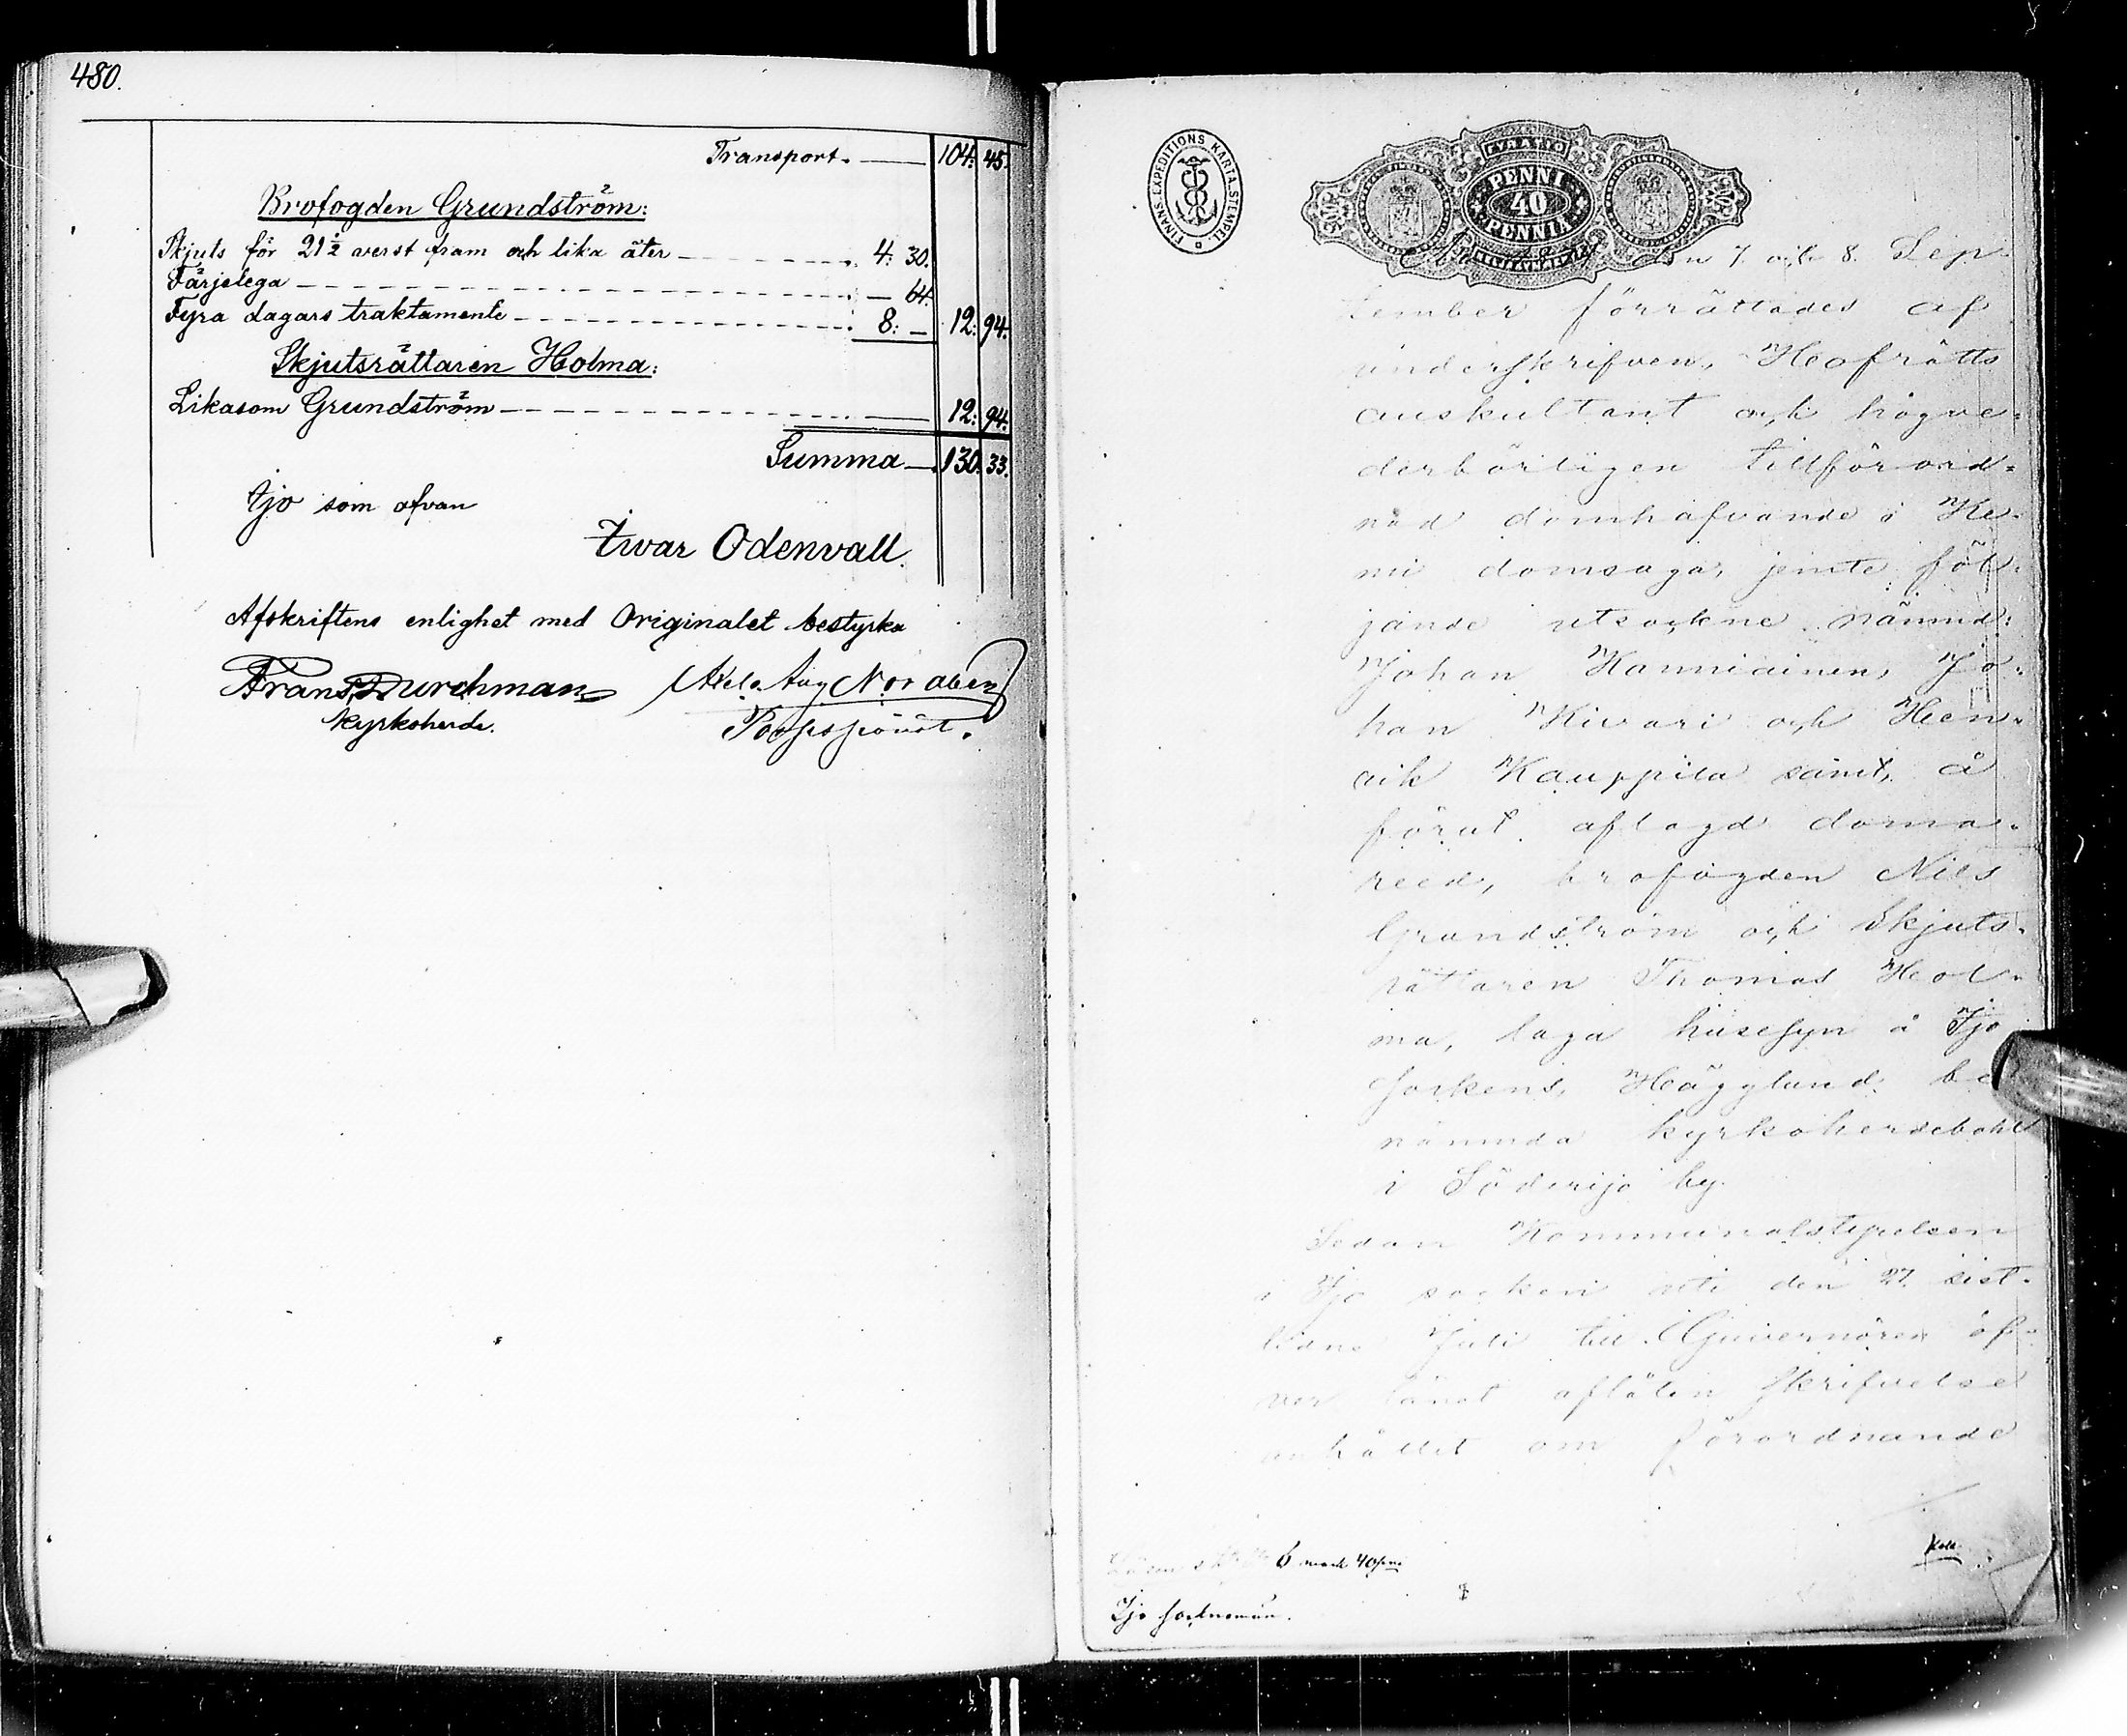 480.
Transport. — 104: 45.
Brofogden Grundström:
Skjuts för 21½ verst fram och lika åter — 4: 30.
Färjelega — — 64.
Fyra dagars traktamente — 8: — 12: 94.
Skjutsrättaren Holma:
Likasom Grundström — 12: 94.
Summa — 130. 33.
Ijo som ofvan
Ivar Odenvall.
Afskriftens enlighet med Originalet bestyrka
Frans Durchman
Kyrkoherde.
FINANS EXPEDITIONS KARTA.STEMPEL.
FYRATIO
PENNI
40
PENNIÄ
den 7. och 8. Sep-
tember förrättades af
underskrifven, Hofrätts
auskultant och högve-
derbörligen tillförord-
nad domhafvande i Ke-
mi domsaga, jemte föl-
jande utsockne nämnd:
Johan Hanniainen, Jo-
han Kiwari och Hen-
rik Kauppila samt, å
förut aflagd doma-
reed, brofogden Nils
Grundström och Skjuts-
rättaren Thomas Hol-
ma, laga husesyn å Ijo
sockens, Hägglund be-
nämnda kyrkoherdebohl
i Söderijo by.
Sedan Kommunalstyrelsen
i Ijo socken uti den 27. sist-
lidne Juli till Guvernören öf-
ver länet aflåten skrifvelse
anhållit om förordnande
Lösen 6 mark 40 pni
Koll.
Ijo sockneman.